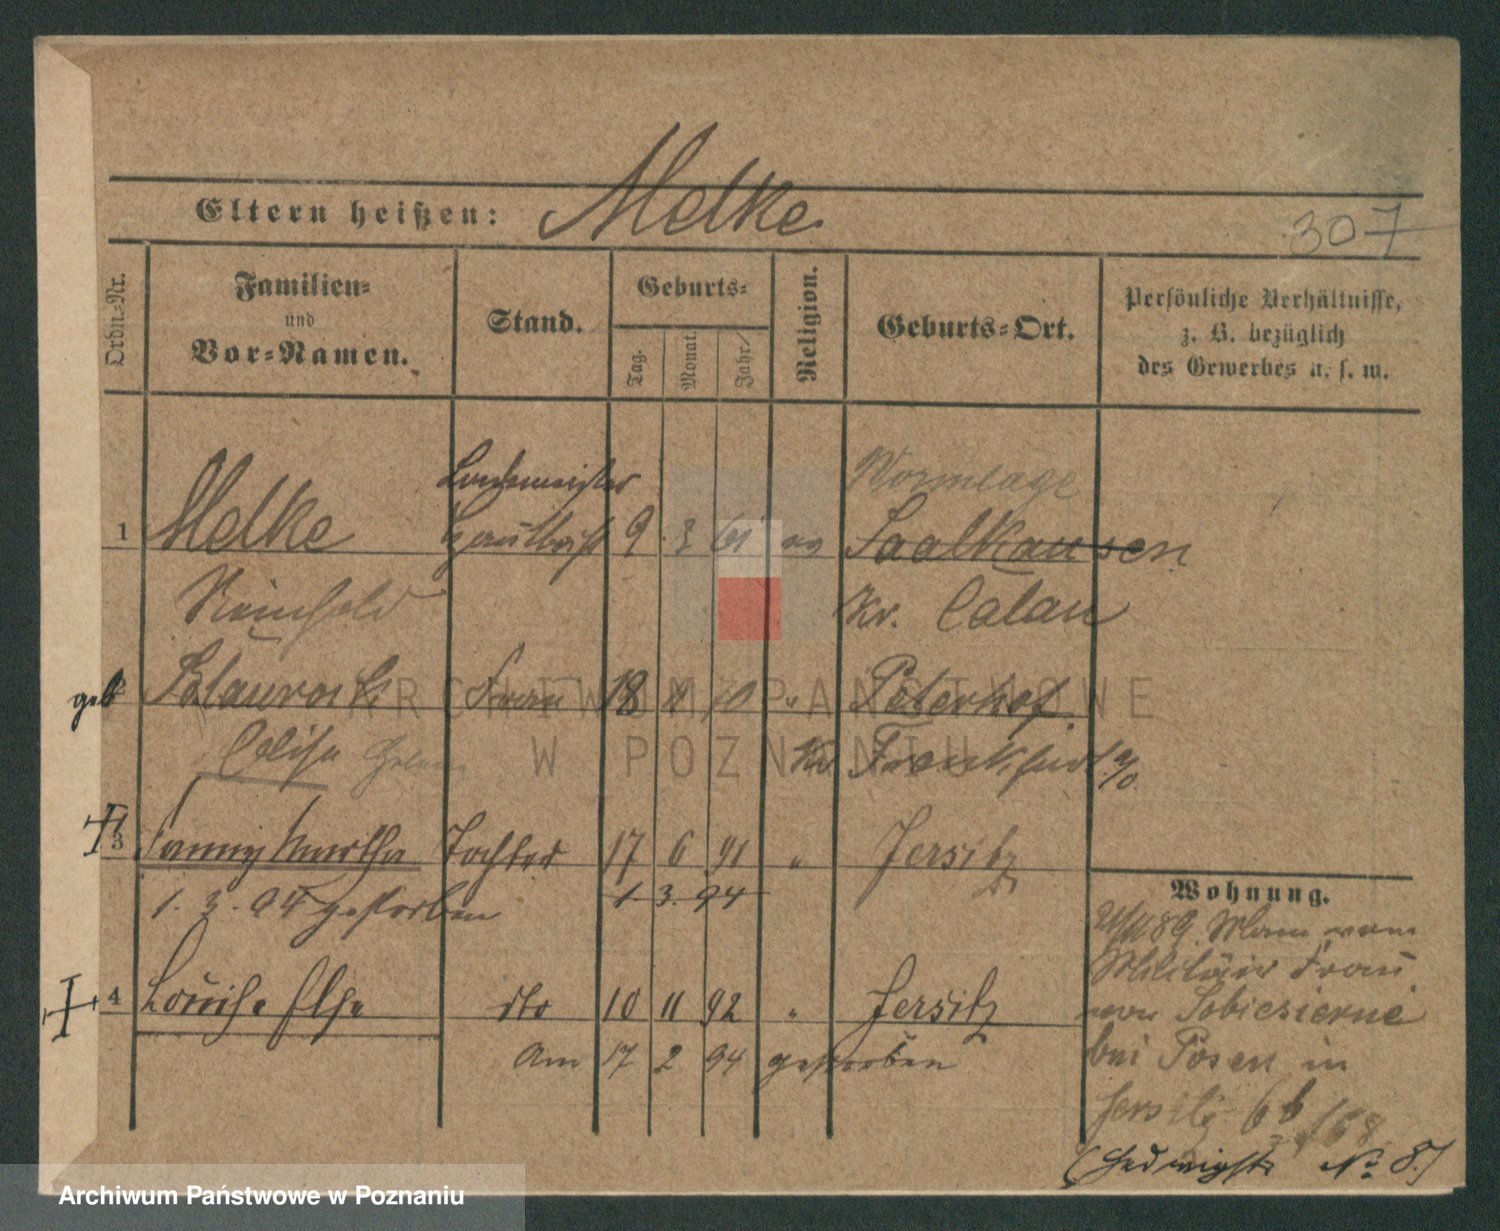 Eltern heißen: Melke
307
Ordn.-Nr.
Familien-
und
Vor-Namen.
Stand.
Geburts-
Tag.
Monat.
Jahr.
Religion.
Geburts-Ort.
Persönliche Verhältnisse,
z. B. bezüglich
des Gewerbes u. s. w.
Wormlage
1 Melke 9 3 61 ev Saalhausen
Reinhold Kr. Calau
geb 2 Frau 18 " Peterhof
Kr Frankfurt a/O.
3 Fanny Martha Tochter 17 6 91 " Jersitz
1. 3. 94 gestorben 1 3. 94
Wohnung.
89. Mann vom
Militär Frau
von Sobiesierne
bei Posen in
Jersitz 6b
4 Louise Else dto 10 11 92 " Jersitz
am 17 2 94 gestorben
(Hedwigstr No 8.)
ARCHIWUM PAŃSTWOWE
W POZNANIU
Archiwum Państwowe w Poznaniu